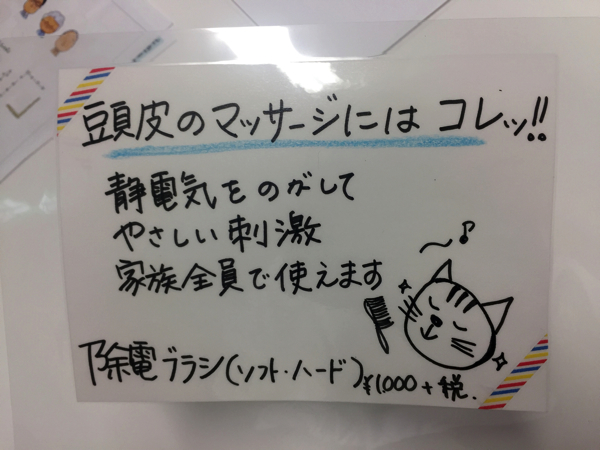 豆頁皮のマッサージにはコレッ!!
静電気をのがして
やさしい刺激
家族全員で使えます
除電ブラシ(ソフト・ハード)¥1,000+税.